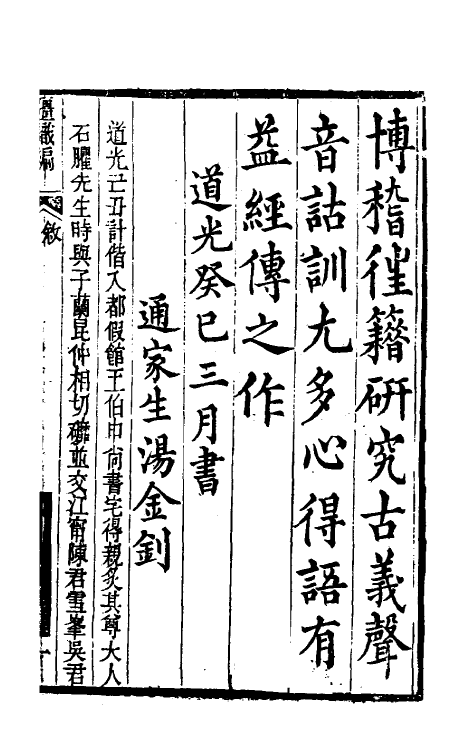 博稽往籍研究古義聲
音詁訓尤多心得語有
益經傳之作
道光癸巳三月書
通家生湯金釗
道光己丑計偕入都假館王伯申尚書宅得親炙其尊大人
石臞先生時與子蘭昆仲相切礲並交江甯陳君雪峯吳君
敘